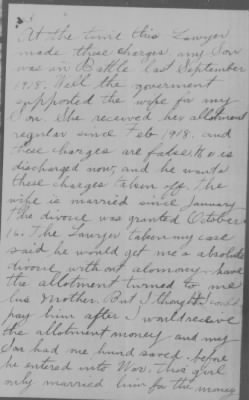 At the time this Lawyer
made these charges, my Son
was in Battle last September
1918. Well the goverment
supported the wife for my
Son. She received her allotment
regular since Feb 1918. and
these charges are false. He is
discharged now, and he wants
these charges taken off. The
wife is married since January
the divorce was granted October
16. The Lawyer taken my case
said he would get me a absolute
divorce with out alomony have
the allotment turned to me
his Mother. But I thought I could
pay him after I would receive
the allotment money and my
Son had one hund saved before
he entered into War. This girl
only married him for the money